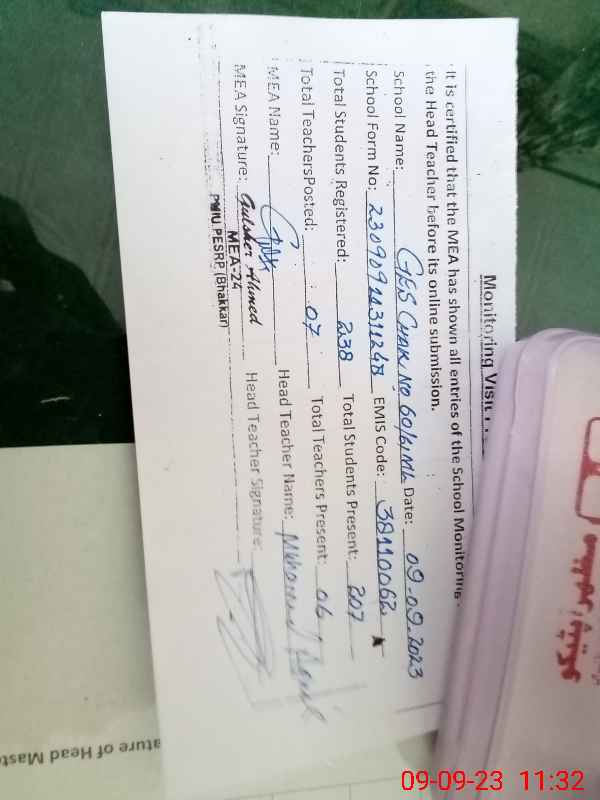 Monitoring Visit
It is certified that the MEA has shown all entries of the School Monitoring
the Head Teacher before its online submission.
School Name: GES Chak No 60/61 ML Date: 09-09-2023
School Form No: EMIS Code: 38110062
Total Students Registered: 238 Total Students Present: 207
Total TeachersPosted: 07 Total Teachers Present: 06
MEA Name: Head Teacher Name:
MEA Signature: Gulsher Ahmed Head Teacher Signature:
MEA-24
PMIU PESRP (Bhakkar)
ature of Head Maste
09-09-23 11:32